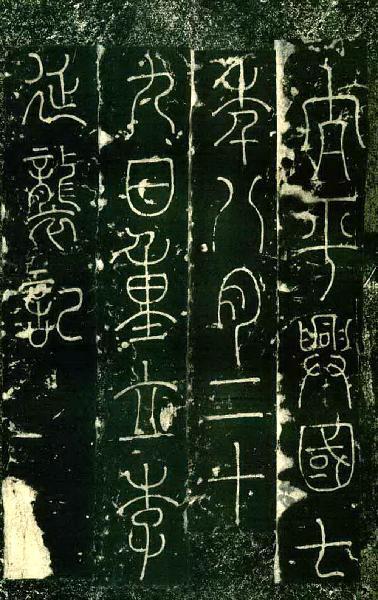 太平興國七
年八月二十
九日重立李
延襲記